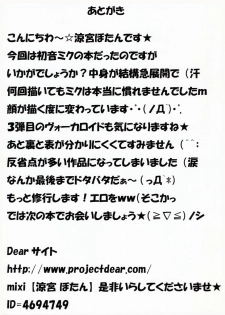 あとがき
こんにちわ～☆涼宮ぼたんです★
今回は初音ミクの本だったのですが
いかがでしょうか？中身が結構急展開で（汗
何回描いてもミクは本当に慣れませんでしたｍ
顔が描く度に変わっています・(ノД`)・、
3弾目のヴォーカロイドも気になりますね★
あと裏と表が分かりにくくてすみません（￣:
反省点が多い作品になってしまいました（涙
なんか最後までドタバタだぁ～（っД`*)
もっと修行します！エロをww（そこかっ
では次の本でお会いしましょう★(≧∇≦)ノシ
Dear サイト
http://www.projectdear.com/
mixi【涼宮 ぼたん】是非いらしてくださいませ★
ID=4694749